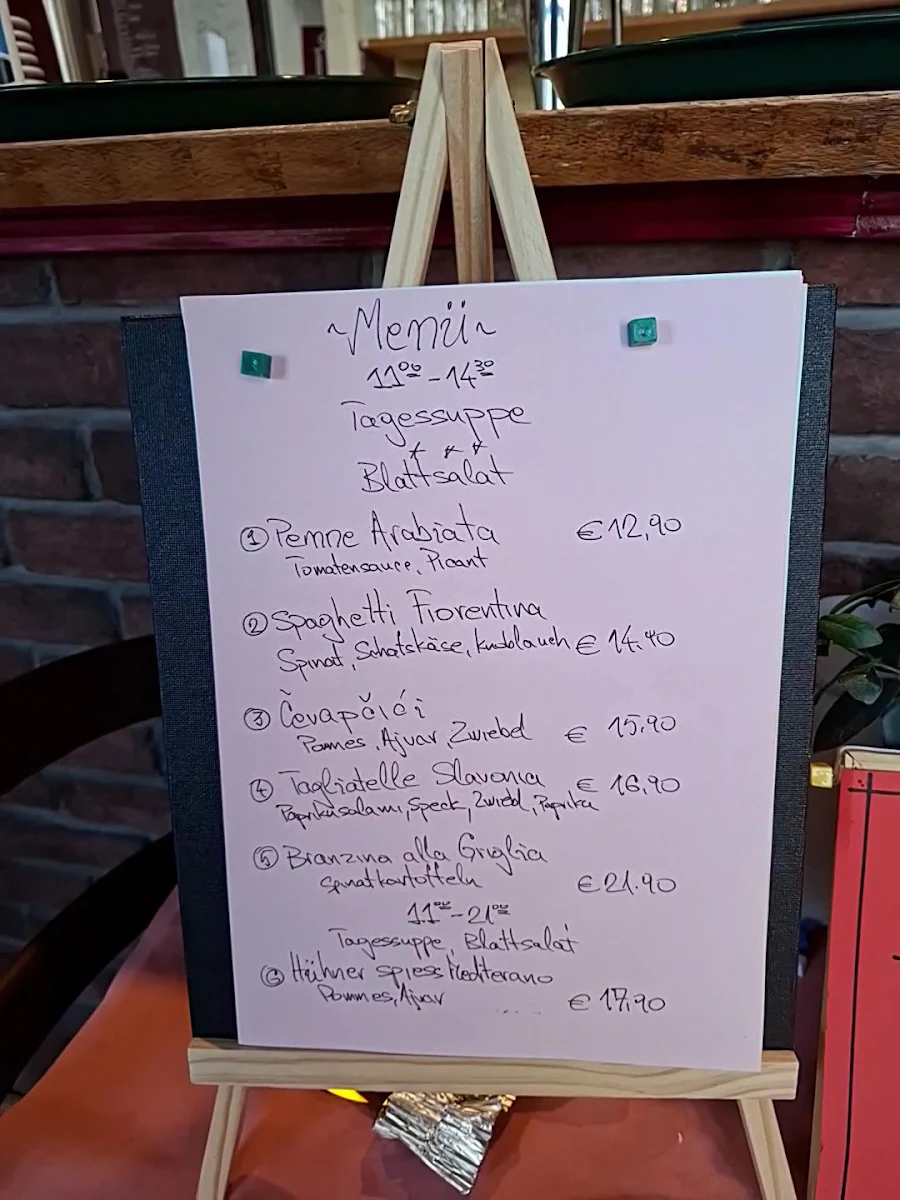 ~Menü~
11⁰⁰ - 14³⁰
Tagessuppe
* * *
Blattsalat
① Penne Arabiata € 12,90
Tomatensauce, Picant
② Spaghetti Fiorentina
Spinat, Schafskäse, Knoblauch € 14.40
③ Čevapčići
Pommes, Ajvar, Zwiebel € 15,90
④ Tagliatelle Slavonia € 16.90
Paprikasalami, Speck, Zwiebel, Paprika
⑤ Branzina alla Griglia
Spinatkartoffeln € 21.90
11⁰⁰ - 21⁰⁰
Tagessuppe, Blattsalat
⑥ Hühner spiess Mediterano
Pommes, Ajvar € 17,90